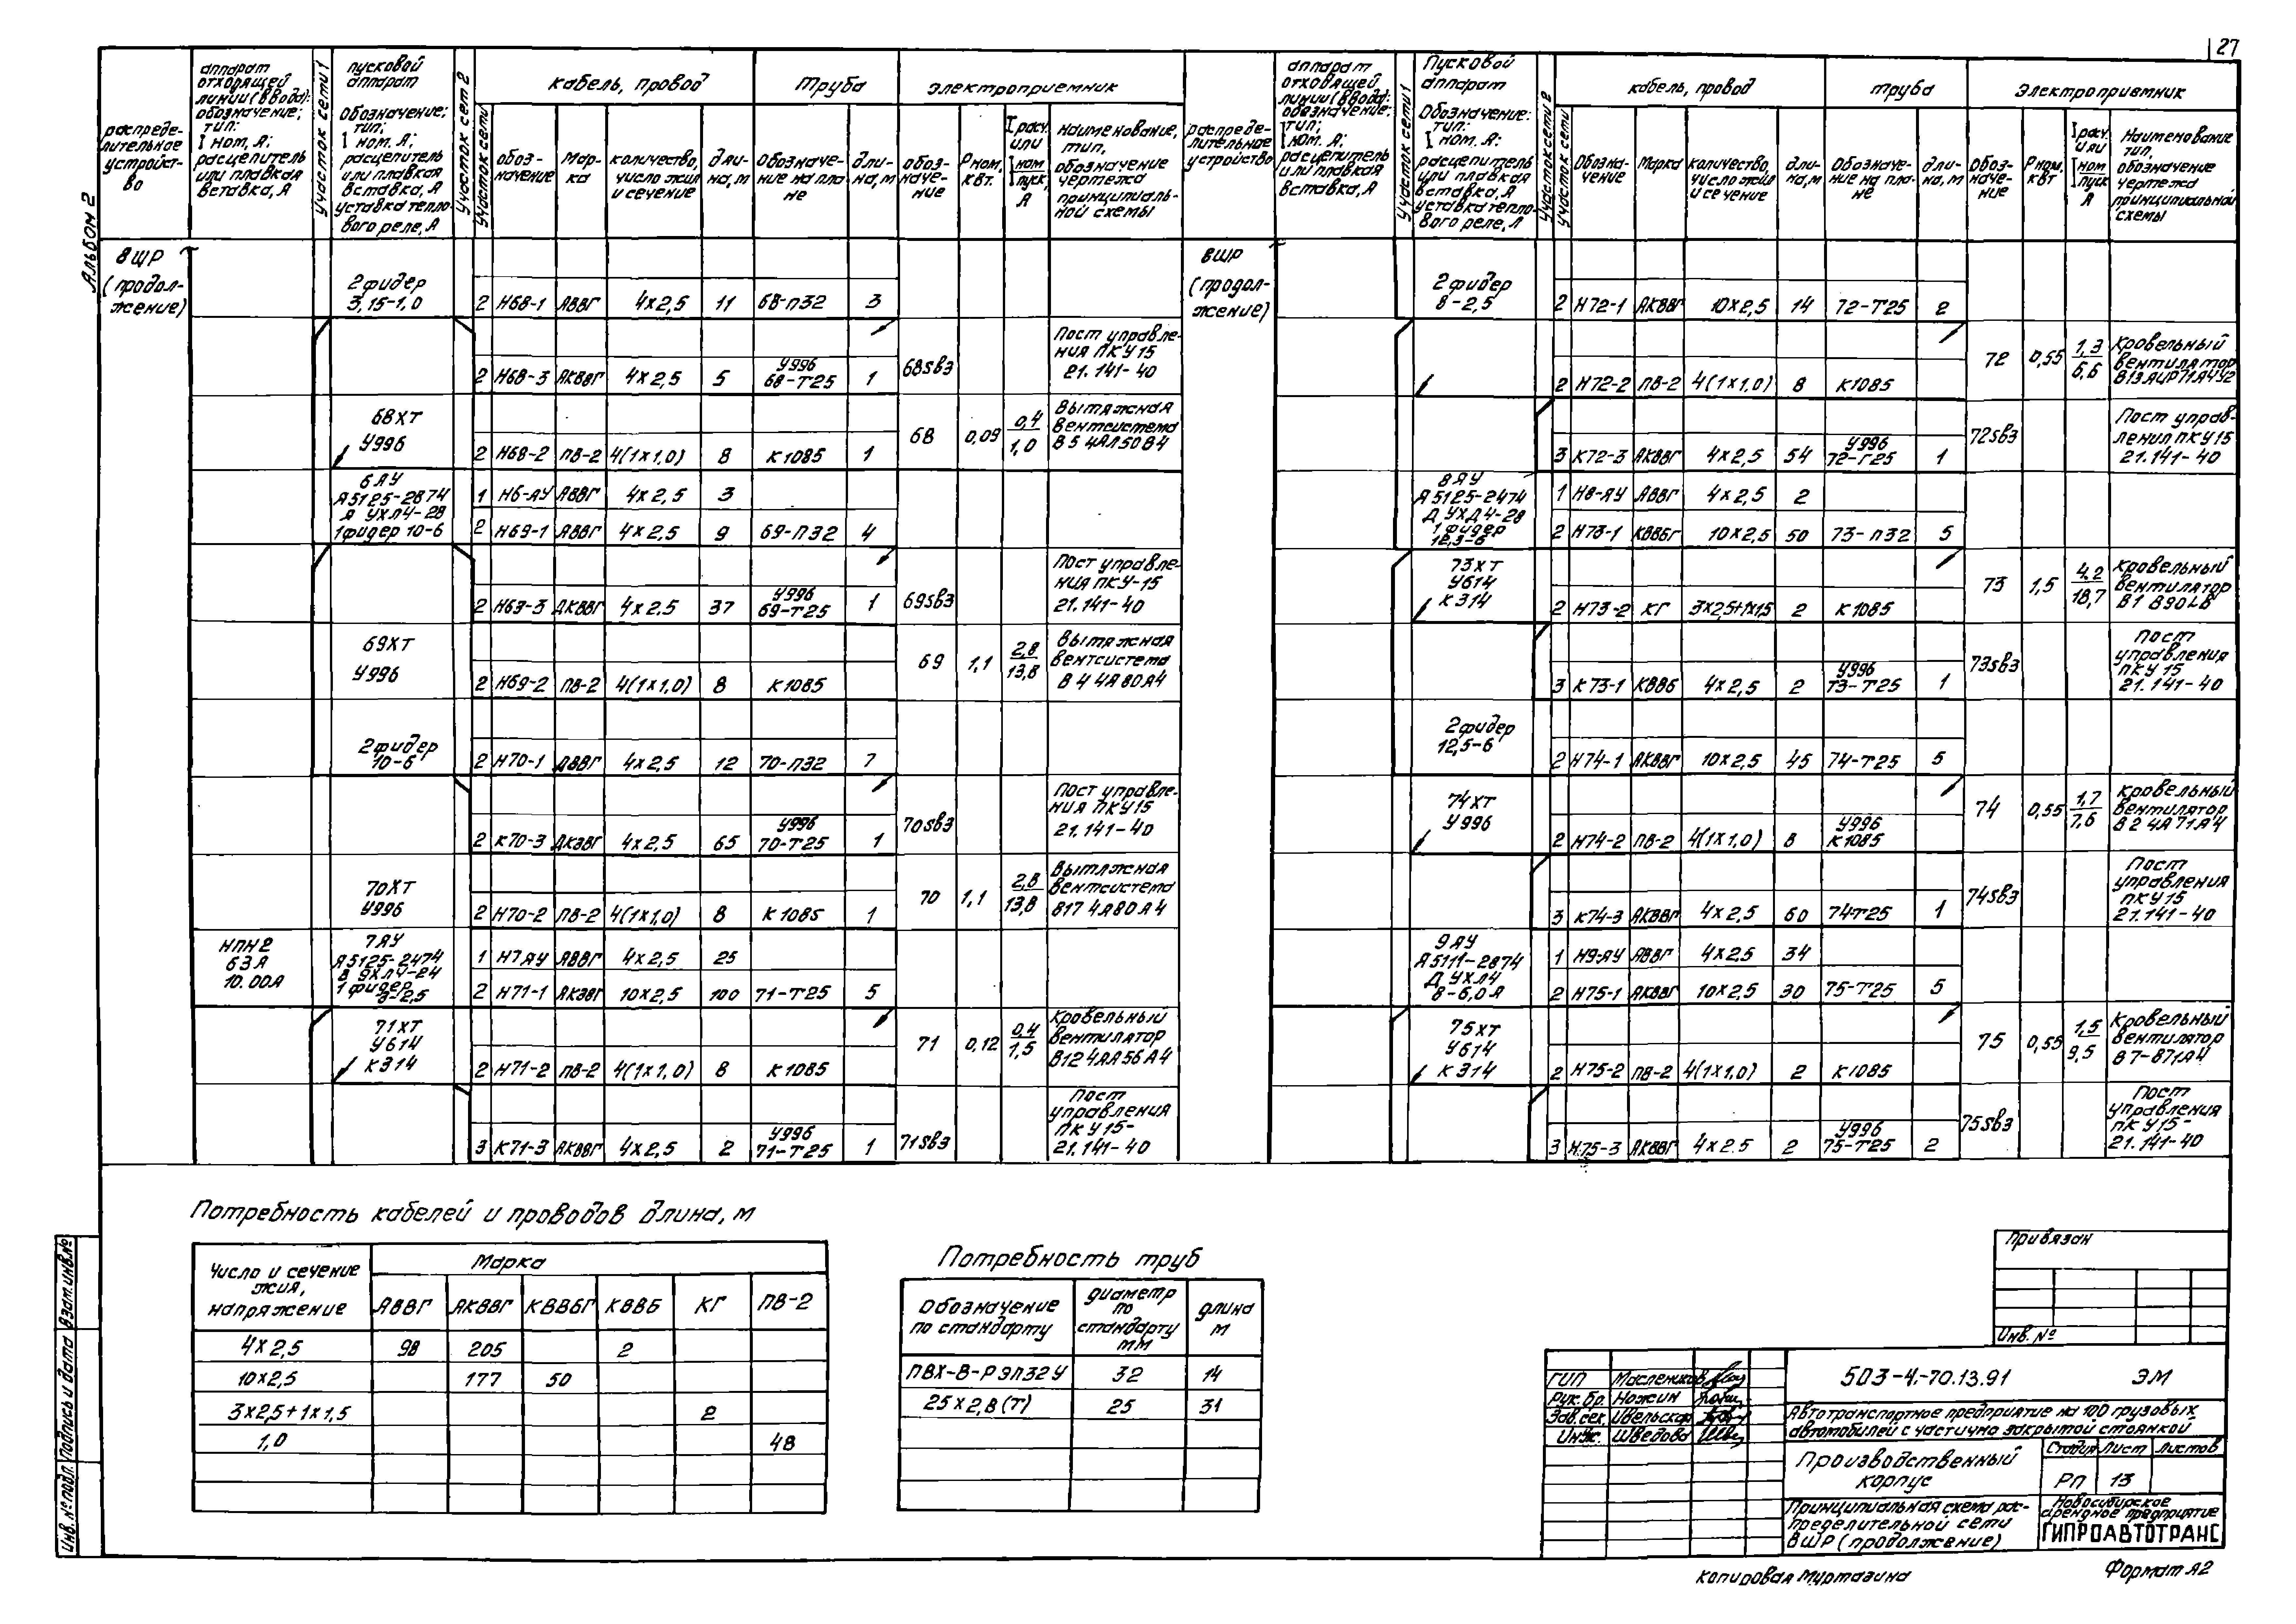 27
Альбом 2
распределительное устройство
аппарат отходящей линии (ввода): обозначение; тип; I ном, А; расцепитель или плавкая вставка, А
Участок сети 1
пусковой аппарат
обозначение; тип; I ном. А; расцепитель или плавкая вставка, А уставка теплового реле, А
Участок сети 2
Участок сети
кабель, провод
Труба
электроприемник
обозначение
Марка
количество, число жил и сечение
длина, м
обозначение на плане
длина, м
обозначение
Рном, кВт.
I расч. или I ном I пуск, А
наименование, тип, обозначение чертежа принципиальной схемы
ВШР
(продолжение)
2 фидер
3,15-1,0
2 Н68-1 АВВГ 4х2,5 11 68-П32 3
2 Н68-3 АКВВГ 4х2,5 5 У996 68-Т25 1 68SВ3 Пост управления ПКУ15 21.141-40
68ХТ
У996
2 Н68-2 ПВ-2 4(1х1,0) 8 К1085 1 68 0,09 0,4 1,0 Вытяжная вентсистема В5 4АА50В4
6ЯУ
Я5125-2874
Д УХЛ4-28
1фидер 10-6
1 Н6-ЯУ АВВГ 4х2,5 3
2 Н69-1 АВВГ 4х2,5 9 69-П32 4
2 Н69-3 АКВВГ 4х2.5 37 У996 69-Т25 1 69SВ3 Пост управления ПКУ-15 21.141-40
69ХТ
У996
2 Н69-2 ПВ-2 4(1х1,0) 8 К1085 69 1,1 2,8 13,8 Вытяжная вентсистема В4 4А80А4
2 фидер
10-6
2 Н70-1 АВВГ 4х2,5 12 70-П32 7
2 К70-3 АКВВГ 4х2.5 65 У996 70-Т25 1 70SВ3 Пост управления ПКУ15 21.141-40
70ХТ
У996
2 Н70-2 ПВ-2 4(1х1,0) 8 К1085 1 70 1,1 2,8 13,8 Вытяжная вентсистема В17 4А80А4
НПН2
63А
10.00А
7ЯУ
Я5125-2474
В 9ХЛ4-24
1 фидер
8-2,5
1 Н7ЯУ АВВГ 4х2.5 25
2 Н71-1 АКВВГ 10х2,5 100 71-Т25 5
71ХТ
У614
К314
2 Н71-2 ПВ-2 4(1х1,0) 8 К1085 71 0,12 0,4 1,5 Кровельный вентилятор В12 4АА56А4
3 К71-3 АКВВГ 4х2,5 2 У996 71-Т25 1 71SВ3 Пост управления ПКУ15- 21.141-40
распределительное устройство
аппарат отходящей линии (ввода): обозначение; тип; I ном. А; расцепитель или плавкая вставка, А
Участок сети 1
Пусковой аппарат
Обозначение: тип: I ном, А; расцепитель или плавкая вставка, А уставка теплового реле, А
Участок сети 2
Участок сети
кабель, провод
труба
Электроприемник
Обозначение
Марка
количество, число жил и сечение
длина, м
Обозначение на плане
длина, м
Обозначение
Рном, кВт
I расч или I ном I пуск А
Наименование тип, обозначение чертежа принципиальной схемы
ВШР
(продолжение)
2 фидер
8-2,5
2 Н72-1 АКВВГ 10х2,5 14 72-Т25 2
2 Н72-2 ПВ-2 4(1х1,0) 8 К1085 72 0,55 1,3 6,6 Кровельный вентилятор В13 АИР71А4У2
3 К72-3 АКВВГ 4х2,5 54 У996 72-Т25 1 72SВ3 Пост управления ПКУ15 21.141-40
8ЯУ
Я5125-2474
Д УХЛ4-28
1 фидер
12,5-6
1 Н8-ЯУ АВВГ 4х2,5 2
2 Н73-1 КВВБГ 10х2,5 50 73-П32 5
73ХТ
У614
К314
2 Н73-2 КГ 3х2,5+1х1,5 2 К1085 73 1,5 4,2 18,7 Кровельный вентилятор В1 В90L8
3 К73-1 КВВБ 4х2,5 2 У996 73-Т25 1 73SВ3 Пост управления ПКУ15 21.141-40
2 фидер
12,5-6
2 Н74-1 АКВВГ 10х2,5 45 74-Т25 5
74ХТ
У996
2 Н74-2 ПВ-2 4(1х1,0) 8 У996 К1085 74 0,55 1,7 7,6 Кровельный вентилятор В2 4А71А4
3 К74-3 АКВВГ 4х2,5 60 74Т25 1 74SВ3 Пост управления ПКУ15 21.141-40
9ЯУ
Я5111-2874
Д УХЛ4
8-6,0А
1 Н9-ЯУ АВВГ 4х2.5 34
2 Н75-1 АКВВГ 10х2,5 30 75-Т25 5
75ХТ
У614
К314
2 Н75-2 ПВ-2 4(1х1,0) 2 К1085 75 0,55 1,5 9,5 Кровельный вентилятор В7-В71А4
3 Н75-3 АКВВГ 4х2.5 2 У996 75-Т25 2 75SВ3 Пост управления ПКУ15- 21.141-40
Потребность кабелей и проводов длина, м
Число и сечение жил, напряжение
Марка
АВВГ АКВВГ КВВБГ КВВБ КГ ПВ-2
4х2,5 98 205 2
10х2,5 177 50
3х2,5+1х1,5 2
1,0 48
Потребность труб
Обозначение по стандарту
диаметр по стандарту мм
длина м
ПВХ-В-РЭП32У 32 14
25х2,8(Т) 25 31
Привязан
Инв. №
ГИП Маслеников
Рук. бр. Ножин
Зав.сек. Ивельская
Инж. Шведова
503-4-70.13.91 ЭМ
Автотранспортное предприятие на 100 грузовых
автомобилей с частично закрытой стоянкой
Производственный
корпус
Стадия Лист Листов
РП 13
Принципиальная схема рас-
пределительной сети
ВШР (продолжение)
Новосибирское
арендное предприятие
ГИПРОАВТОТРАНС
Копировал Муртазина
Формат А2
Инв. № подл. Подпись и дата Взам. инв. №